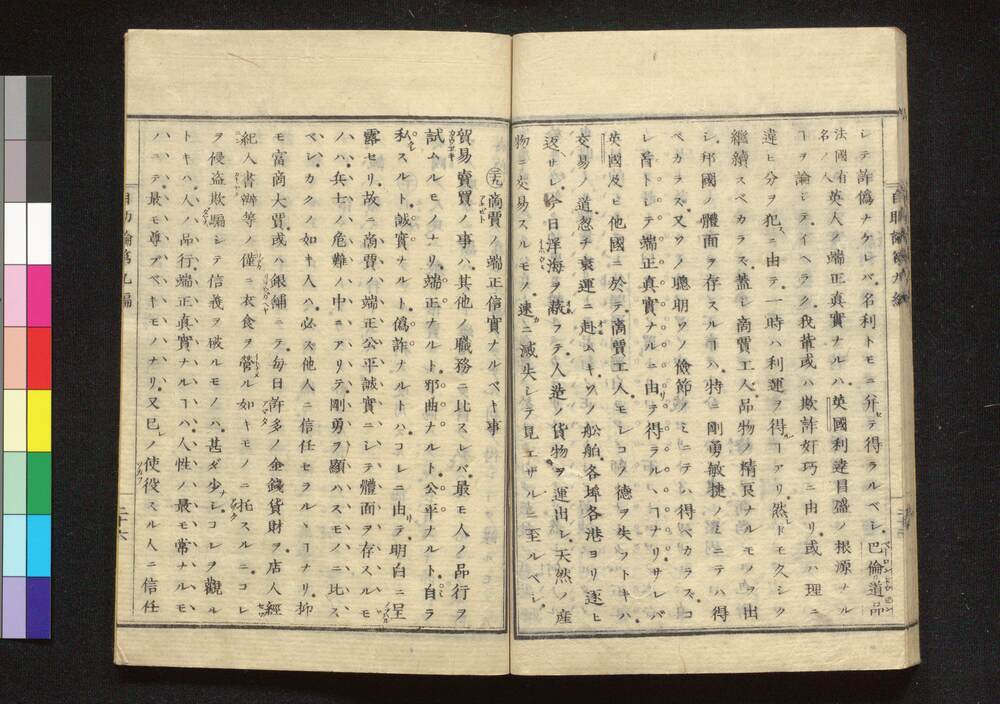 シテ詐偽ナケレバ名利トモニ并セテ得ラルベシ巴倫道品
法國有名ノ人英人ノ端正真實ナルハ英國利達昌盛ノ根源ナル
ヿヲ論シテイヘラク我輩或ハ欺詐奸巧ニ由リ或ハ理ニ
違ヒ分ヲ犯スニ由テ一時ハ利運ヲ得ルヿアリ然レドモ久シク
繼續スベカラズ蓋シ商賈工人品物ノ精良ナルモノヲ出
シ邦國ノ體面ヲ存スルヿハ特ニ剛勇敏捷ノミニテハ得
ベカラス又ソノ聰明ソノ儉節ノミニテハ得ベカラズコ
レ首トシテ端正真實ナルニ由テ得ラルヽヿナリサレバ
英國及ヒ他國ニ於テ商賈工人モシコノ德ヲ失フトキハ
交易ノ道忽チ衰運ニ赴ムキソノ船舶各埠各港ヨリ逐ヒ
返サレ今日浮海ヲ蔽フテ人造ノ貨物ヲ運出シ天然ノ産
物ニ交易スルモノ速カニ滅失シテ見エザルニ至ルベシ
自助論第九編
㊂九商賈ノ端正信實ナルベキ事
貿易賣買ノ事ハ其他ノ職務ニ比スレバ最モ人ノ品行ヲ
試ムルモノナリ端正ナルト邪曲ナルト公平ナルト自ラ
私スルト誠實ナルト偽詐ナルトハコレニ由テ明白ニ呈
露セリ故ニ商賈ノ端正公平誠實ニシテ體面ヲ存スルモ
ノハ兵士ノ危難ノ中ニアリテ剛勇ヲ顯ハスモノニ比ス
ベシカクノ如キ人ハ必ス他人ニ信任セラルヽヿナリ抑
モ富商大賈或ハ銀鋪ニテ毎日許多ノ金錢貨財ヲ店人經
紀人書辦等ノ僅ニ衣食ヲ營ル如キモノニ托スルニコレ
ヲ侵盗欺騙シテ信義ヲ破ルモノハ甚ダ少シコレヲ觀ル
トキハ人ノ品行端正真實ナルヿハ人性ノ最モ常ナルモ
ノニテ最モ尊ブベキモノナリ又已レノ使役スル人ニ信任
自助論第九編
二十六